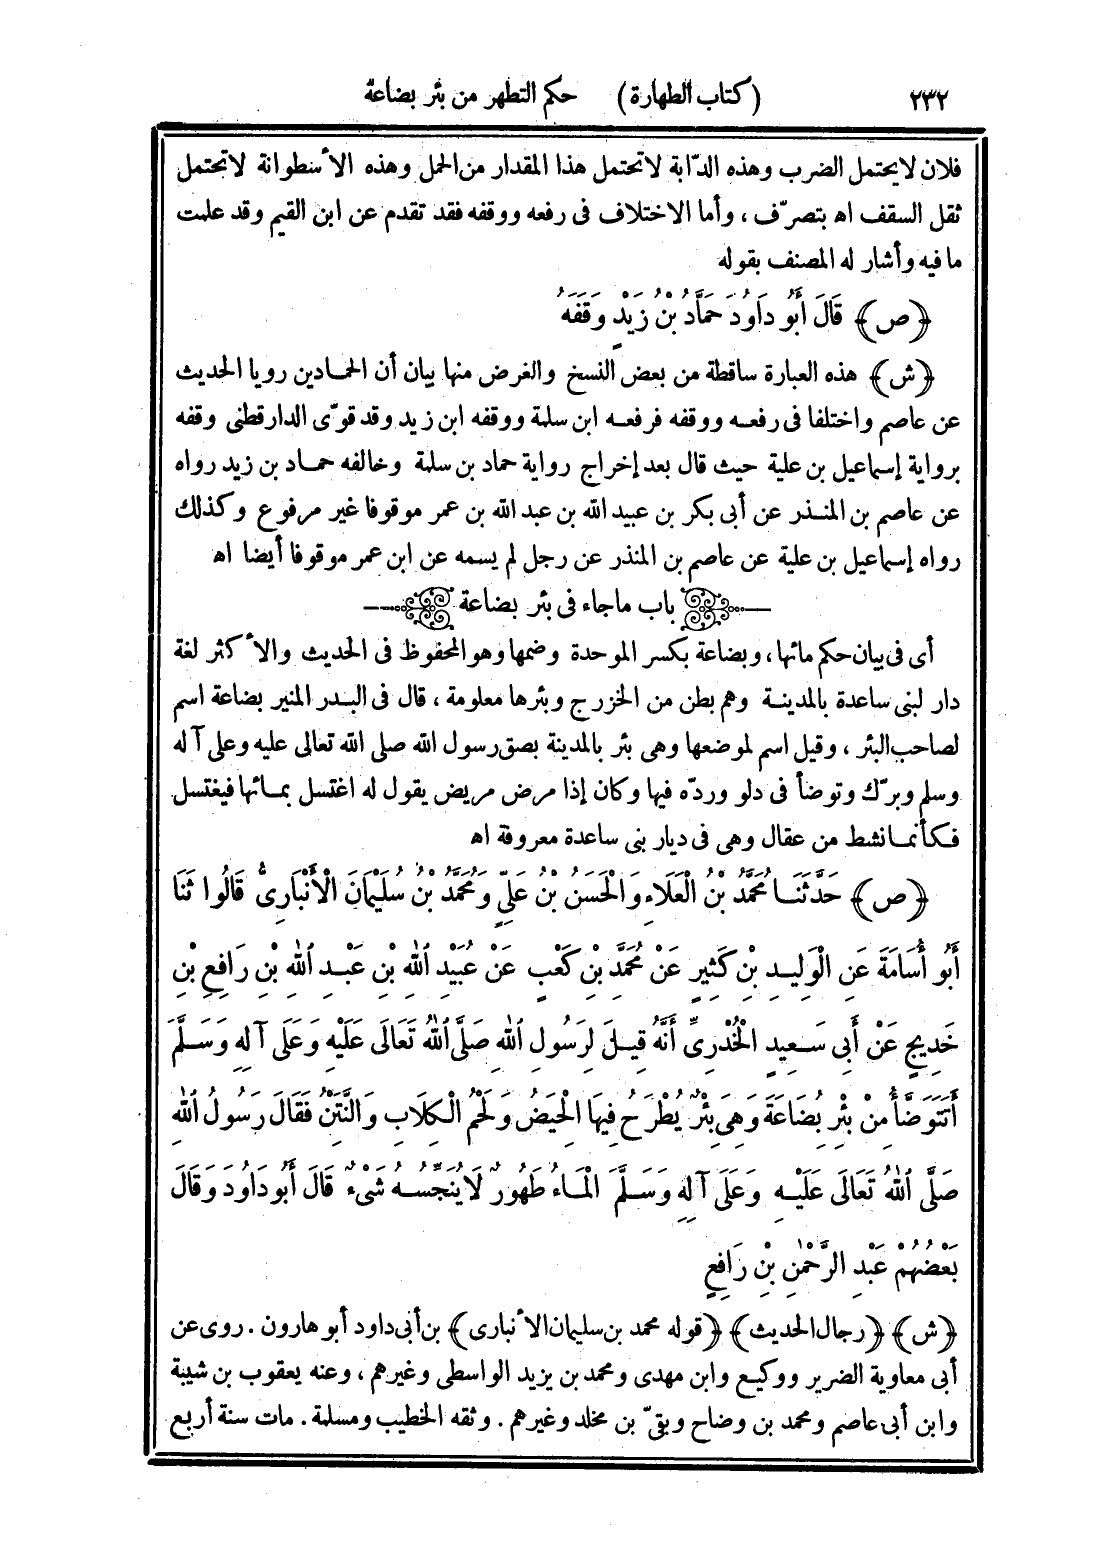 ٢٣٢ (كتاب الطهارة) حكم التطهر من بئر بضاعة
فلان لا يحتمل الضرب وهذه الدّابة لا تحتمل هذا المقدار من الحمل وهذه الأسطوانة لا تحتمل
ثقل السقف اه بتصرّف ، وأما الاختلاف فى رفعه ووقفه فقد تقدم عن ابن القيم وقد علمت
ما فيه وأشار له المصنف بقوله
﴿ص﴾ قَالَ أَبُو دَاوُدَ حَمَّادُ بْنُ زَيْدٍ وَقَفَهُ
﴿ش﴾ هذه العبارة ساقطة من بعض النسخ والغرض منها بيان أن الحمادين رويا الحديث
عن عاصم واختلفا فى رفعه ووقفه فرفعه ابن سلمة ووقفه ابن زيد وقد قوّى الدارقطنى وقفه
برواية إسماعيل بن علية حيث قال بعد إخراج رواية حماد بن سلمة وخالفه حماد بن زيد رواه
عن عاصم بن المنذر عن أبى بكر بن عبيد الله بن عبد الله بن عمر موقوفا غير مرفوع وكذلك
رواه إسماعيل بن علية عن عاصم بن المنذر عن رجل لم يسمه عن ابن عمر موقوفا أيضا اه
باب ما جاء فى بئر بضاعة
أى فى بيان حكم مائها ، وبضاعة بكسر الموحدة وضمها وهو المحفوظ فى الحديث والأكثر لغة
دار لبنى ساعدة بالمدينة وهم بطن من الخزرج وبئرها معلومة ، قال فى البدر المنير بضاعة اسم
لصاحب البئر ، وقيل اسم لموضعها وهى بئر بالمدينة بصق رسول الله صلى الله تعالى عليه وعلى آله
وسلم وبرّك وتوضأ فى دلو وردّه فيها وكان إذا مرض مريض يقول له اغتسل بمائها فيغتسل
فكأنما نشط من عقال وهى فى ديار بنى ساعدة معروفة اه
﴿ص﴾ حَدَّثَنَا مُحَمَّدُ بْنُ الْعَلَاءِ وَالْحَسَنُ بْنُ عَلِيٍّ وَمُحَمَّدُ بْنُ سُلَيْمَانَ الْأَنْبَارِىُّ قَالُوا ثَنَا
أَبُو أُسَامَةَ عَنِ الْوَلِيدِ بْنِ كَثِيرٍ عَنْ مُحَمَّدِ بْنِ كَعْبٍ عَنْ عُبَيْدِ اللهِ بْنِ عَبْدِ اللهِ بْنِ رَافِعِ بْنِ
خَدِيجٍ عَنْ أَبِى سَعِيدٍ الْخُدْرِىِّ أَنَّهُ قِيلَ لِرَسُولِ اللهِ صَلَّى اللهُ تَعَالَى عَلَيْهِ وَعَلَى آلِهِ وَسَلَّمَ
أَتَتَوَضَّأُ مِنْ بِئْرِ بُضَاعَةَ وَهِىَ بِئْرٌ يُطْرَحُ فِيهَا الْحِيَضُ وَلَحْمُ الْكِلَابِ وَالنَّتَنُ فَقَالَ رَسُولُ اللهِ
صَلَّى اللهُ تَعَالَى عَلَيْهِ وَعَلَى آلِهِ وَسَلَّمَ الْمَاءُ طَهُورٌ لَا يُنَجِّسُهُ شَىْءٌ قَالَ أَبُو دَاوُدَ وَقَالَ
بَعْضُهُمْ عَبْدِ الرَّحْمٰنِ بْنِ رَافِعٍ
﴿ش﴾ ﴿رجال الحديث﴾ ﴿قوله محمد بن سليمان الأنبارى﴾ بن أبى داود أبو هارون . روى عن
أبى معاوية الضرير ووكيع وابن مهدى ومحمد بن يزيد الواسطى وغيرهم ، وعنه يعقوب بن شيبة
وابن أبى عاصم ومحمد بن وضاح وبقىّ بن مخلد وغيرهم . وثقه الخطيب ومسلمة . مات سنة أربع